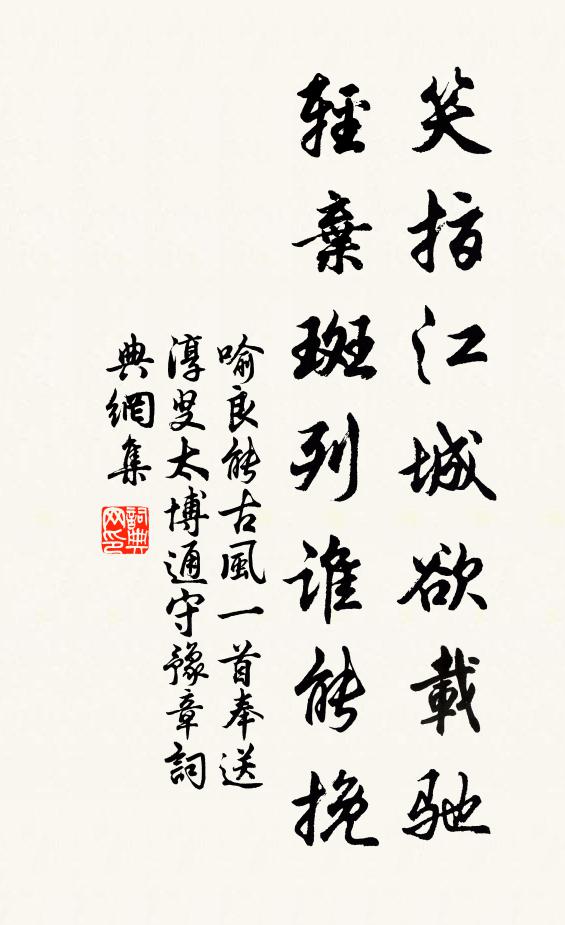 笑指江城欲載驰
輕棄班列谁能挽
喻良能古風一首奉送
淳叟太博通守豫章詞
典網集
詞典网印